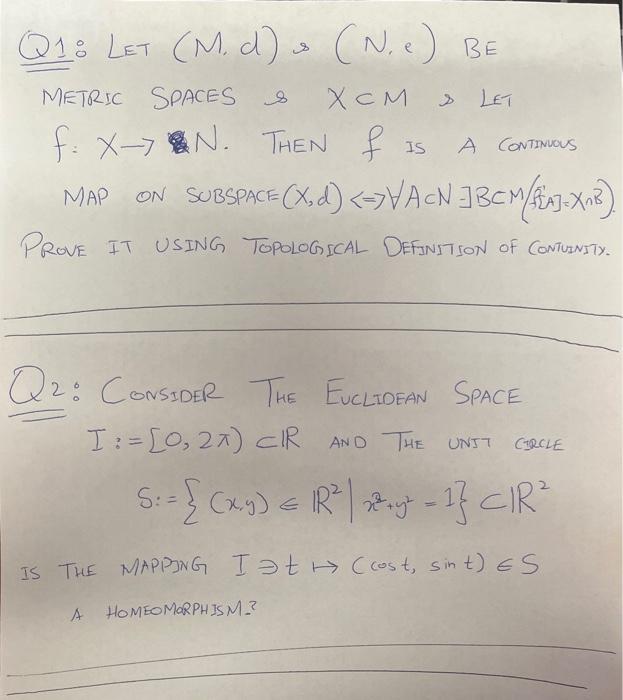 Q1: LET (M, d) & (N, e) BE
METRIC SPACES & X ⊂ M & LET
f: X → N. THEN f IS A CONTINUOUS
MAP ON SUBSPACE (X, d) <=> ∀ A ⊂ N ∃ B ⊂ M / f⁻¹[A] = X ∩ B).
PROVE IT USING TOPOLOGICAL DEFINITION OF CONTUINITY.
Q2: CONSIDER THE EUCLIDEAN SPACE
I := [0, 2π) ⊂ ℝ AND THE UNIT CIRCLE
S := { (x,y) ∈ ℝ² | x² + y² = 1} ⊂ ℝ²
IS THE MAPPING I ∋ t ↦ (cos t, sin t) ∈ S
A HOMEOMORPHISM?